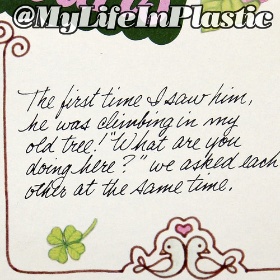 @MyLifeInPlastic
The first time I saw him,
he was climbing in my
old tree! "What are you
doing here?" we asked each
other at the same time.